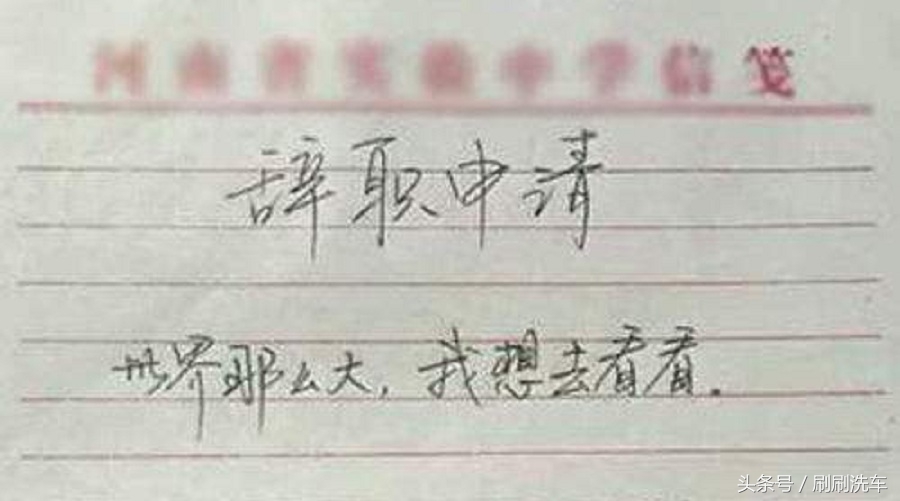 笺
辞职申请
世界那么大,我想去看看。
头条号 / 刷刷洗车